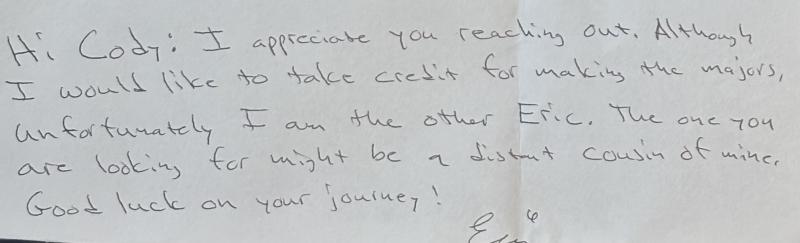 Hi Cody: I appreciate you reaching out. Although
I would like to take credit for making the majors,
unfortunately I am the other Eric. The one you
are looking for might be a distant cousin of mine.
Good luck on your journey!